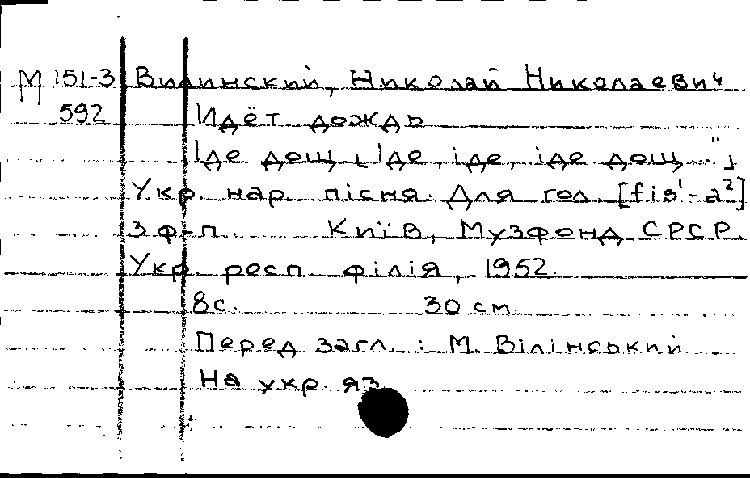 М 151-3 Вилинский, Николай Николаевич
592 Идёт дождь
Іде дощ „Іде, іде, іде дощ..."
Укр. нар. пісня. Для гол. [fis¹-a²]
з ф-п. Київ, Музфонд СРСР.
Укр. респ. філія, 1952.
8с. 30 см
Перед загл.: М. Вілінський
На укр. яз.